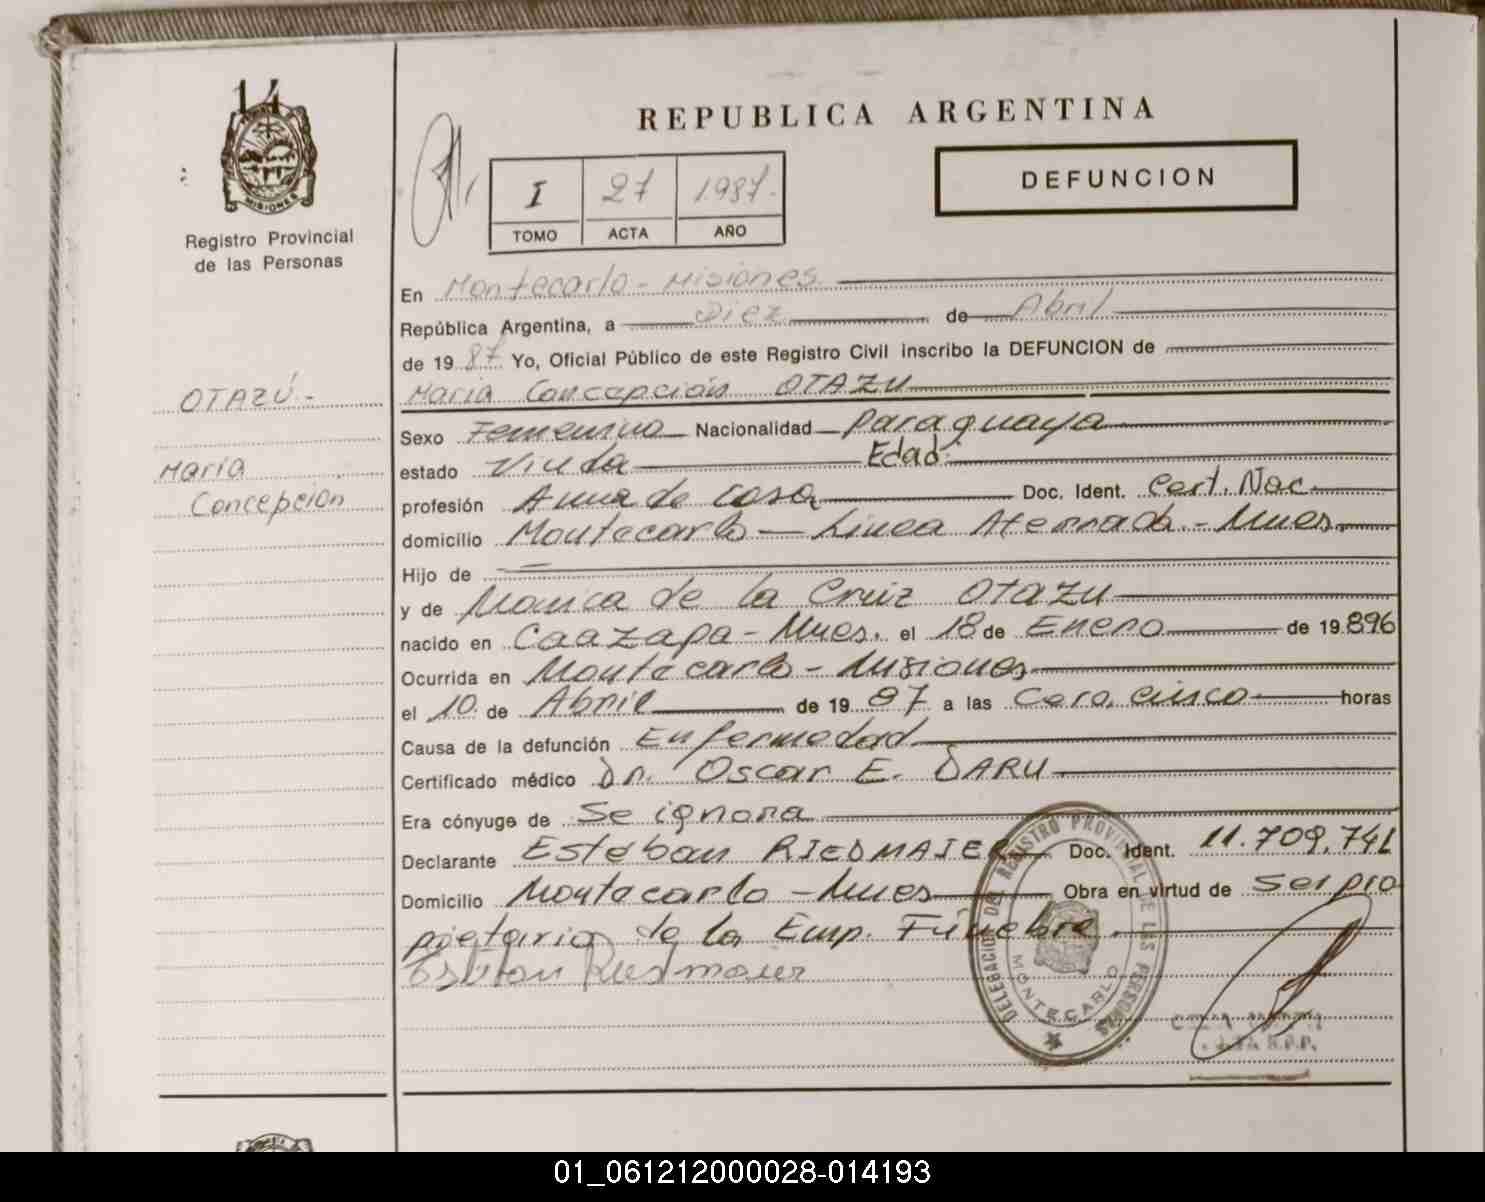 14
MISIONES
Registro Provincial
de las Personas
OTAZÚ.-
María
Concepción
REPUBLICA ARGENTINA
DEFUNCION
I 27 1.987.-
TOMO ACTA AÑO
En Montecarlo - Misiones
República Argentina, a Diez de Abril
de 19 87 Yo, Oficial Público de este Registro Civil inscribo la DEFUNCION de
María Concepción OTAZU
Sexo Femenino Nacionalidad Paraguaya
estado Viuda Edad:
profesión Ama de casa Doc. Ident. Cert. Nac.
domicilio Montecarlo - Linea Aterrada - Mnes.
Hijo de
y de Monica de la Cruz OTAZU
nacido en Caazapa - Mnes. el 18 de Enero de 19 896
Ocurrida en Montecarlo - Misiones
el 10 de Abril de 19 87 a las Cero, cinco horas
Causa de la defunción Enfermedad
Certificado médico Dr. Oscar E. DARU
Era cónyuge de Se ignora
Declarante Esteban RIEDMAIER Doc. Ident. 11.709.741
Domicilio Montecarlo - Mnes Obra en virtud de ser pro
pietario de la Emp. Fúnebre.
Esteban Riedmaier
DELEGACION DEL REGISTRO PROVINCIAL DE LAS PERSONAS
MONTECARLO
R.P.P.
01_061212000028-014193